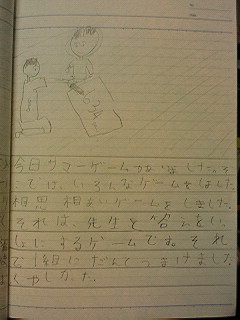 今日サマーゲームがありました。そ
こでは、いろんなゲームをしました。
相思相あいゲームをしました。
それは、先生と答えをい
しょにするゲームです。それ
で1組にだんとつまけました
くやしかた。